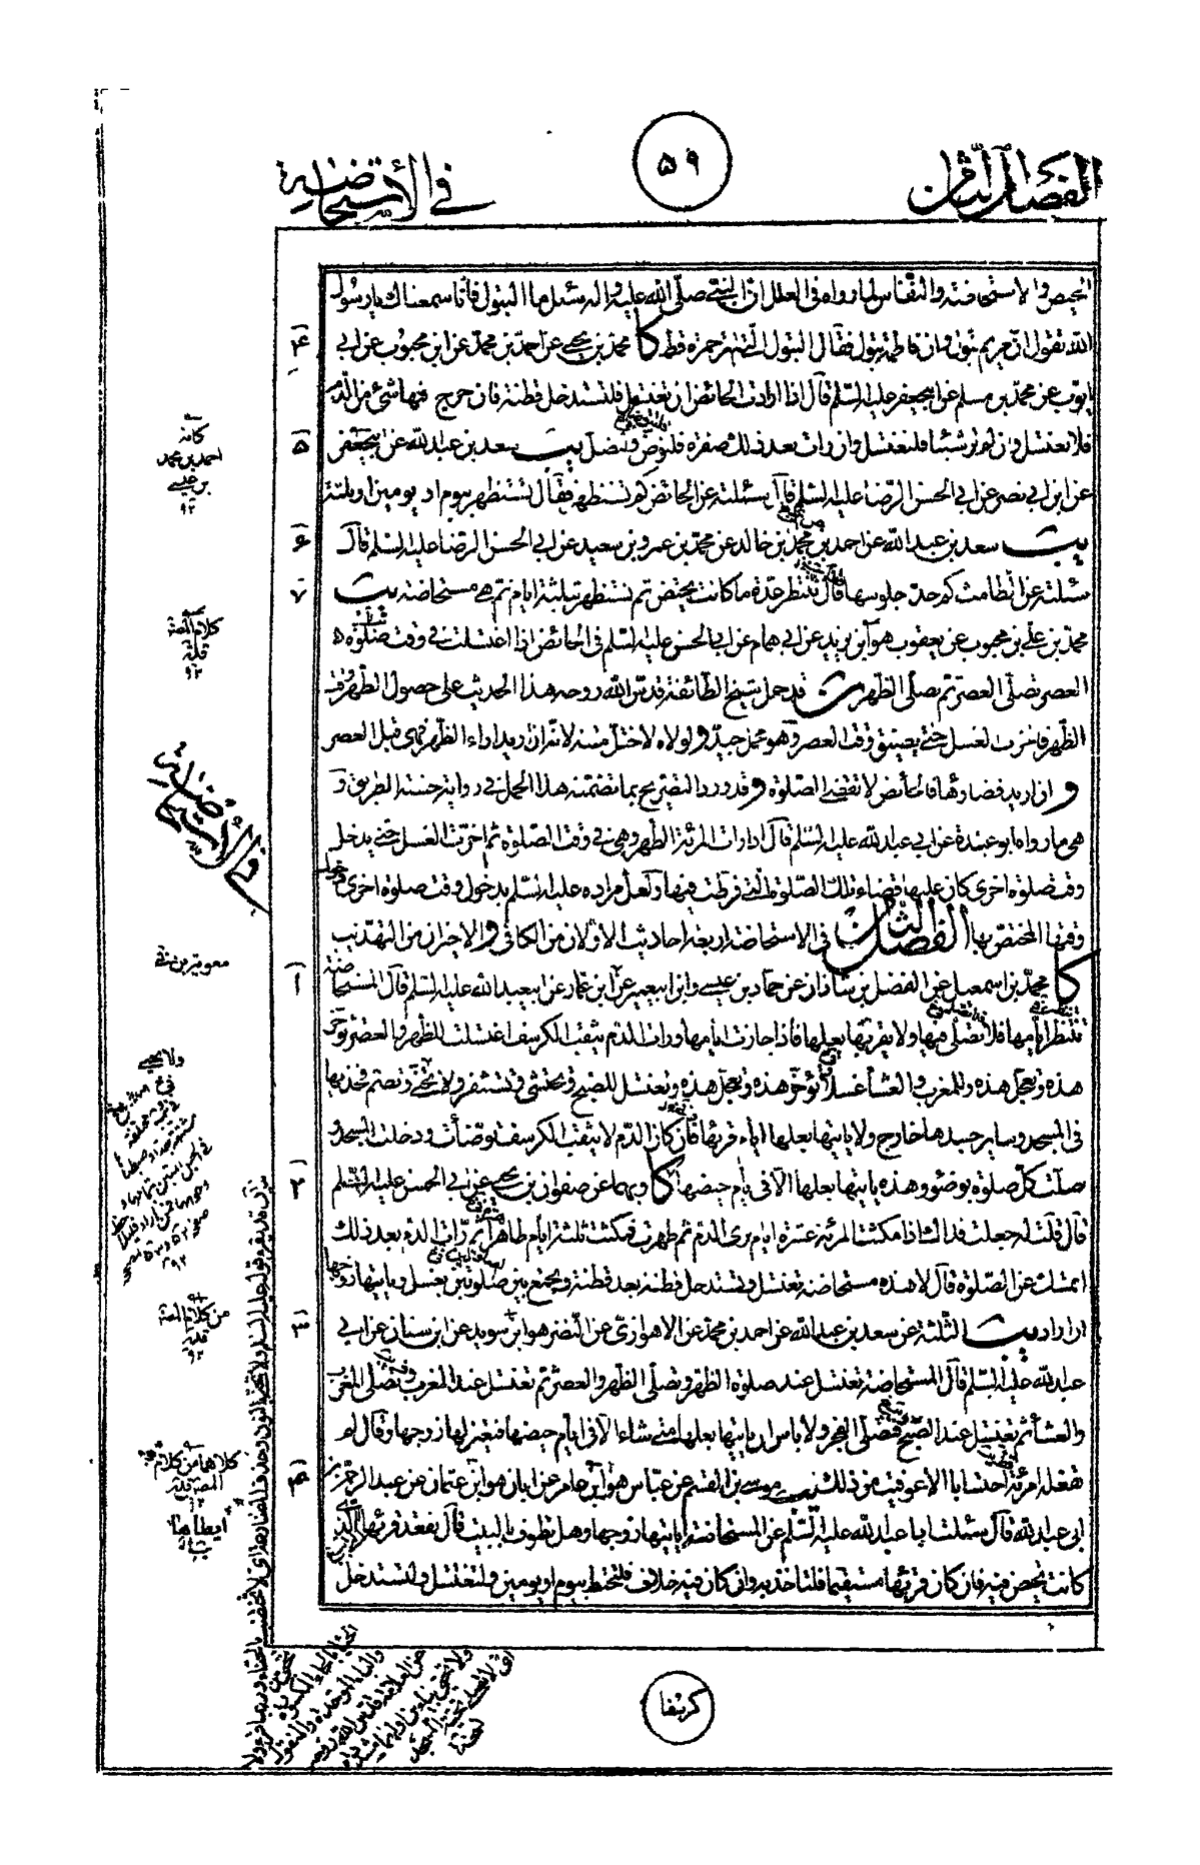 الفصل الثامن
۵۹
في الاستحاضة
الحيض والاستحاضة والنفاس لما رواه في العلل ان النبي صلّى الله عليه واله سئل ما البتول فانا سمعناك يا رسول
الله تقول ان مريم بتول وان فاطمة بتول فقال البتول التي لم تر حمرة قط كا محمد بن يحيى عن احمد بن محمد عن ابن محبوب عن ابي
ايوب عن محمد بن مسلم عن ابي جعفر عليه السلم قال اذا ارادت الحائض ان تغتسل فلتستدخل قطنة فان خرج فيها شئ من الدم
فلا تغتسل وان لم تر شيئا فلتغتسل وان رات بعد ذلك صفرة فلتوض ولتصل يب سعد بن عبد الله عن ابي جعفر
عن ابن ابي نصر عن ابي الحسن الرضا عليه السلم قال سئلته عن الحائض كم تستظهر فقال تستظهر بيوم او يومين او ثلثة
يب سعد بن عبد الله عن احمد بن محمد بن خالد عن محمد بن عمرو بن سعيد عن ابي الحسن الرضا عليه السلم قال
سئلته عن الطامث كم حد جلوسها قال تنتظر عدة ما كانت تحيض ثم تستظهر بثلثة ايام ثم هي مستحاضة يب
محمد بن علي بن محبوب عن يعقوب هو ابن يزيد عن ابي همام عن ابي الحسن عليه السلم في الحائض اذا اغتسلت في وقت صلوة
العصر تصلي العصر ثم تصلي الظهر ن قد حمل شيخ الطائفة قدس الله روحه هذا الحديث على حصول الطهر وقت
الظهر فاخرت الغسل حتى يضيق وقت العصر وهو محمل جيد ولولاه لاختل متنه لانه ان اريد اداء الظهر فهي قبل العصر
وان اريد قضاؤها فالحائض لا تقضي الصلوة وقد ورد التصريح بما تضمنه هذا الحمل في رواية حسنة الطريق و
هي ما رواه ابو عبيدة عن ابي عبد الله عليه السلم قال اذا رات المرئة الطهر وهي في وقت الصلوة ثم اخرت الغسل حتى يدخل
وقت صلوة اخرى كان عليها قضاء تلك الصلوة التي فرطت فيها ولعل مراده عليه السلم بدخول وقت صلوة اخرى دخول
وقتها المختص بها الفصل الثامن في الاستحاضة اربعة احاديث الاولان من الكافي والاخران من التهذيب
كا محمد بن اسمعيل عن الفضل بن شاذان عن حماد بن عيسى وابن ابي عمير عن ابن عمار عن ابي عبد الله عليه السلم قال المستحاضة
تنتظر ايامها فلا تصلي فيها ولا يقربها بعلها فاذا جازت ايامها ورات الدم يثقب الكرسف اغتسلت للظهر والعصر تؤخر
هذه وتعجل هذه وللمغرب والعشاء غسلا تؤخر هذه وتعجل هذه وتغتسل للصبح وتحتشي وتستثفر ولا تحيى وتضم فخذيها
في المسجد وساير جسدها خارج ولا ياتيها بعلها ايام قرئها فان كان الدم لا يثقب الكرسف توضأت ودخلت المسجد و
صلت كل صلوة بوضوء وهذه ياتيها بعلها الا في ايام حيضها كا وبهما عن صفوان بن يحيى عن ابي الحسن عليه السلم
قال قلت له جعلت فداك اذا مكثت المرئة عشرة ايام ترى الدم ثم طهرت فمكثت ثلثة ايام طاهرا ثم رات الدم بعد ذلك
اتمسك عن الصلوة قال لا هذه مستحاضة تغتسل وتستدخل قطنة بعد قطنة وتجمع بين صلوتين بغسل وياتيها زوجها
ان اراد يب الثلثة عن سعد بن عبد الله عن احمد بن محمد عن الاهوازي عن النضر هو ابن سويد عن ابن سنان عن ابي
عبد الله عليه السلم قال المستحاضة تغتسل عند صلوة الظهر وتصلي الظهر والعصر ثم تغتسل عند المغرب وتصلي المغرب
والعشاء ثم تغتسل عند الصبح فتصلي الفجر ولا باس ان ياتيها بعلها متى شاء الا في ايام حيضها فيعتزلها زوجها وقال لم
تفعله امرئة احتسابا الا عوفيت من ذلك يب موسى بن القسم عن عباس هو ابن عامر عن ابان هو ابن عثمان عن عبد الرحمن بن
ابي عبد الله قال سئلت ابا عبد الله عليه السلم عن المستحاضة اياتيها زوجها وهل تطوف بالبيت قال تقعد قرئها الذي
كانت تحيض فيه فان كان قرئها مستقيما فلتاخذ به وان كان فيه خلاف فلتحتط بيوم او يومين ولتغتسل ولتستدخل
كرسفا
۴
۵
كانه
احمد بن محمد
بن عيسى
۶
۷
كلام المصنف
في الاستحاضة
۱
معوية بن
ولا تحيى
۲
من كلام المصنف
۳
۴
كلاهما من كلام
ايضا